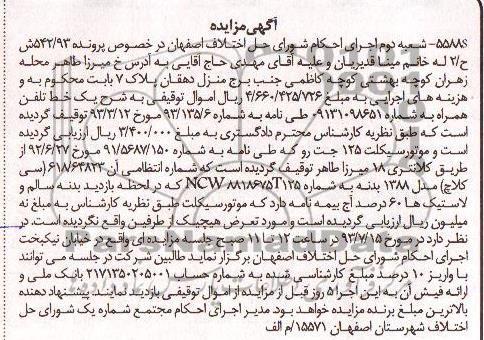 آگهی مزایده
۵۵۸۸S- شعبه دوم اجرای احکام شورای حل اختلاف اصفهان در خصوص پرونده ۵۴۲/۹۳ش
ح/۲ له خانم مینا قدیریان و علیه آقای مهدی حاج آقایی به آدرس خ میرزا طاهر محله
زهران کوچه بهشت کوچه کاظمی جنب برج منزل دهقان پلاک ۷ بابت محکوم به و
هزینه های اجرایی به مبلغ ۴/۶۶۰/۴۲۵/۷۳۶ ریال اموال توقیفی به شرح یک خط تلفن
همراه به شماره ۰۹۱۳۱۰۹۸۶۵۱ طی نامه به شماره ۹۳/۱۳۵/۶ مورخ ۹۳/۳/۱۲ توقیف گردیده
است که طبق نظریه کارشناس محترم دادگستری به مبلغ ۳/۴۰۰/۰۰۰ ریال ارزیابی گردیده
است و موتورسیکلت ۱۲۵ جت رو که طی نامه به شماره ۹۱/۵۶۸۷/۱۵۰ مورخ ۹۲/۶/۲۷ از
طریق کلانتری ۱۸ میرزا طاهر توقیف گردیده است که شماره انتظامی آن ۶۱۸/۶۴۸۲۳ (سی
کلاچ) مدل ۱۳۸۸ بدنه به شماره NCW ۸۸۱۸۶۷۵T۱۲۵ که در لحظه بازدید بدنه سالم و
لاستیک ها ۶۰ درصد آج بیمه نامه دارد که موتورسیکلت طبق نظریه کارشناس به مبلغ نه
میلیون ریال ارزیابی گردیده است و مورد تعرض هیچیک از طرفین واقع نگردیده است. در
نظر دارد در مورخ ۹۳/۷/۱۵ در ساعت ۱۲ - ۱۱ صبح جلسه مزایده ای واقع در خیابان نیکبخت
اجرای احکام شورای حل اختلاف اصفهان برگزار نماید طالبین شرکت در جلسه می توانند
با واریز ۱۰ درصد مبلغ کارشناسی شده به شماره حساب ۲۱۷۱۳۵۰۲۰۵۰۰۱ بانک ملی و
ارائه فیش آن به این اجرا ۵ روز قبل از مزایده از اموال توقیفی بازدید نمایند. پیشنهاد دهنده
بالاترین مبلغ برنده مزایده خواهد بود. مدیر اجرای احکام مجتمع شماره یک شورای حل
اختلاف شهرستان اصفهان ۱۵۵۷۱/م الف